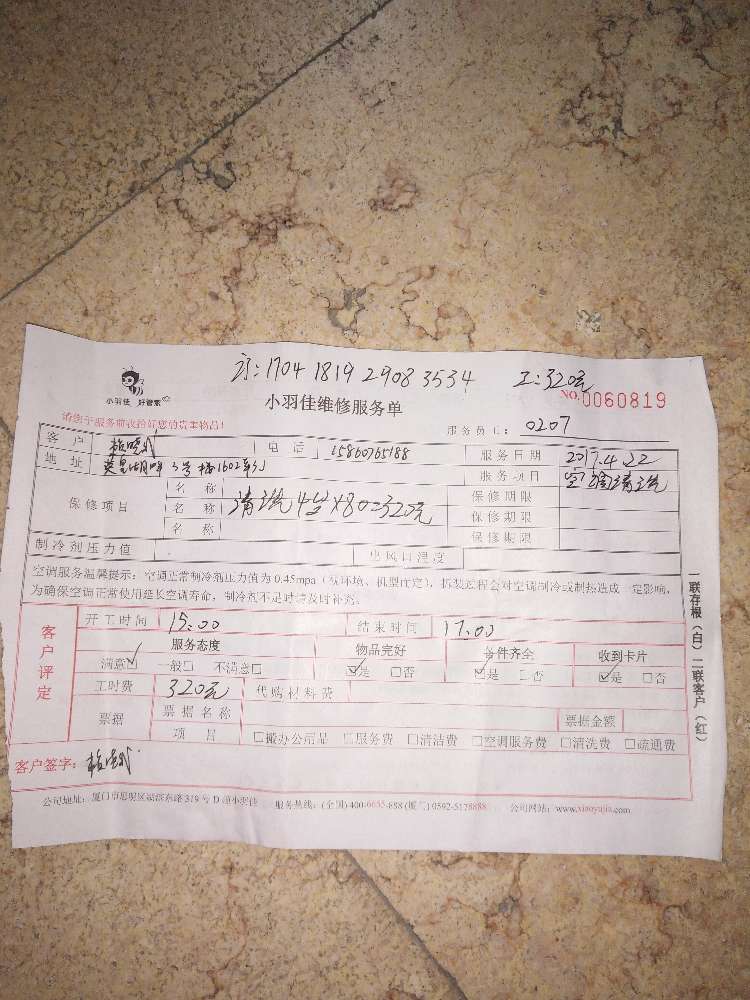 订:1704 1819 2908 3534 工:320元
小羽佳 好管家
小羽佳维修服务单
NO.0060819
请您于服务前收拾好您的贵重物品!
服务员工: 0207
客户 电话 15860765188 服务日期 2017.4.22
地址 3号楼1602单元 服务项目 空调清洗
保修项目
名称 清洗4台×80=320元 保修期限
名称 保修期限
名称 保修期限
制冷剂压力值 出风口温度
空调服务温馨提示:空调正常制冷剂压力值为0.45mpa(视环境、机型而定),拆装过程会对空调制冷或制热造成一定影响,
为确保空调正常使用延长空调寿命,制冷剂不足时请及时补充。
客户评定
开工时间 15:00 结束时间 17:00
服务态度 物品完好 备件齐全 收到卡片
满意☑ 一般□ 不满意□ ☑是 □否 ☑是 □否 ☑是 □否
工时费 320元 代购材料费
票据 票据名称 票据金额
项目 □搬办公用品 □服务费 □清洁费 □空调服务费 □清洗费 □疏通费
客户签字:
公司地址:厦门市思明区 319号D 小羽佳 服务热线:(全国)400-6655-888 (厦门)0592-5178888 公司网站:www.xiaoyujia.com
一联存根(白)二联客户(红)